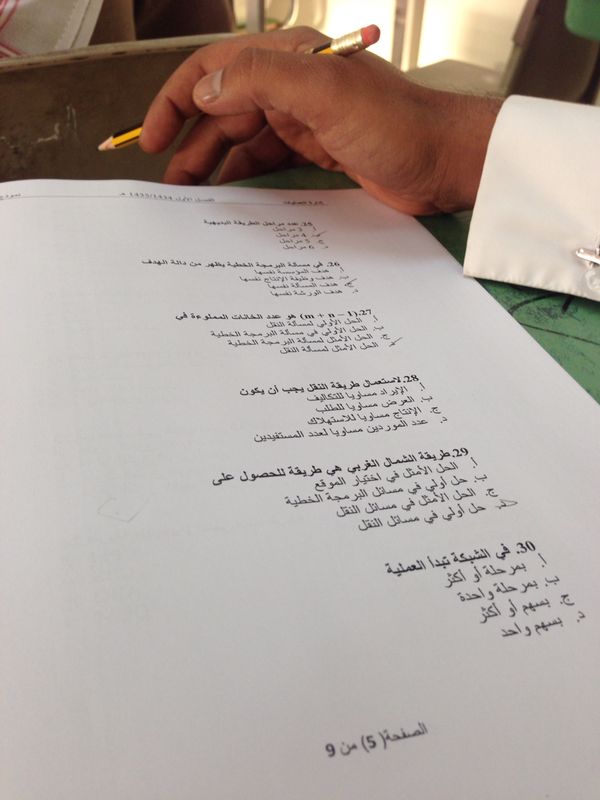 إدارة العمليات الفصل الأول 1433/1434 هـ نموذج
25. عدد مراحل الطريقة البديهية
أ. 3 مراحل
ب. 4 مراحل
ج. 5 مراحل
د. 6 مراحل
26. في مسألة البرمجة الخطية يظهر من دالة الهدف
أ. هدف المؤسسة نفسها
ب. هدف وظيفة الإنتاج نفسها
ج. هدف المسألة نفسها
د. هدف الورشة نفسها
27. (m + n – 1) هو عدد الخانات المملوءة في
أ. الحل الأولي لمسألة النقل
ب. الحل الأولي في مسألة البرمجة الخطية
ج. الحل الأمثل لمسألة البرمجة الخطية
الحل الأمثل لمسألة النقل
28. لاستعمال طريقة النقل يجب أن يكون
أ. الإيراد مساويا للتكاليف
ب. العرض مساويا للطلب
ج. الإنتاج مساويا للاستهلاك
د. عدد الموردين مساويا لعدد المستفيدين
29. طريقة الشمال الغربي هي طريقة للحصول على
أ. الحل الأمثل في اختيار الموقع
ب. حل أولي في مسائل البرمجة الخطية
ج. الحل الأمثل في مسائل النقل
د. حل أولي في مسائل النقل
30. في الشبكة تبدأ العملية
أ. بمرحلة أو أكثر
ب. بمرحلة واحدة
ج. بسهم أو أكثر
د. بسهم واحد
الصفحة (5) من 9